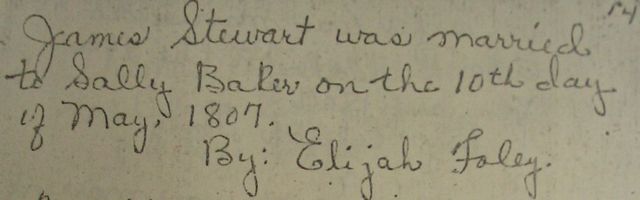 14
James Stewart was married
to Sally Baker on the 10th day
of May, 1807.
By: Elijah Foley.